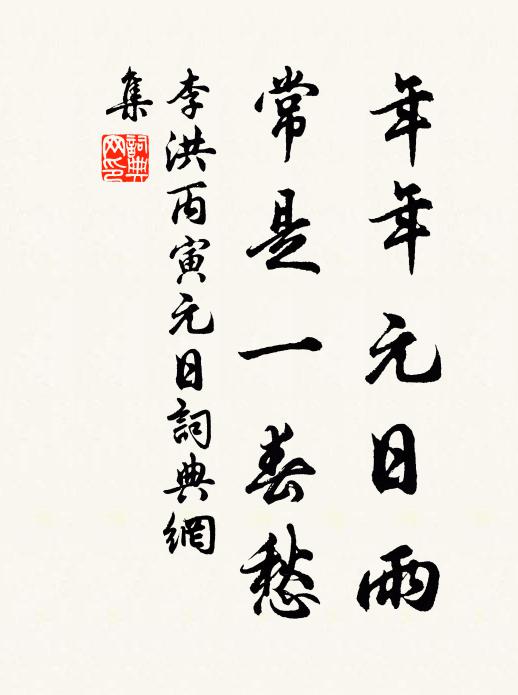 年年元日雨
常是一春愁
李洪丙寅元日詞典網
集
詞典网印